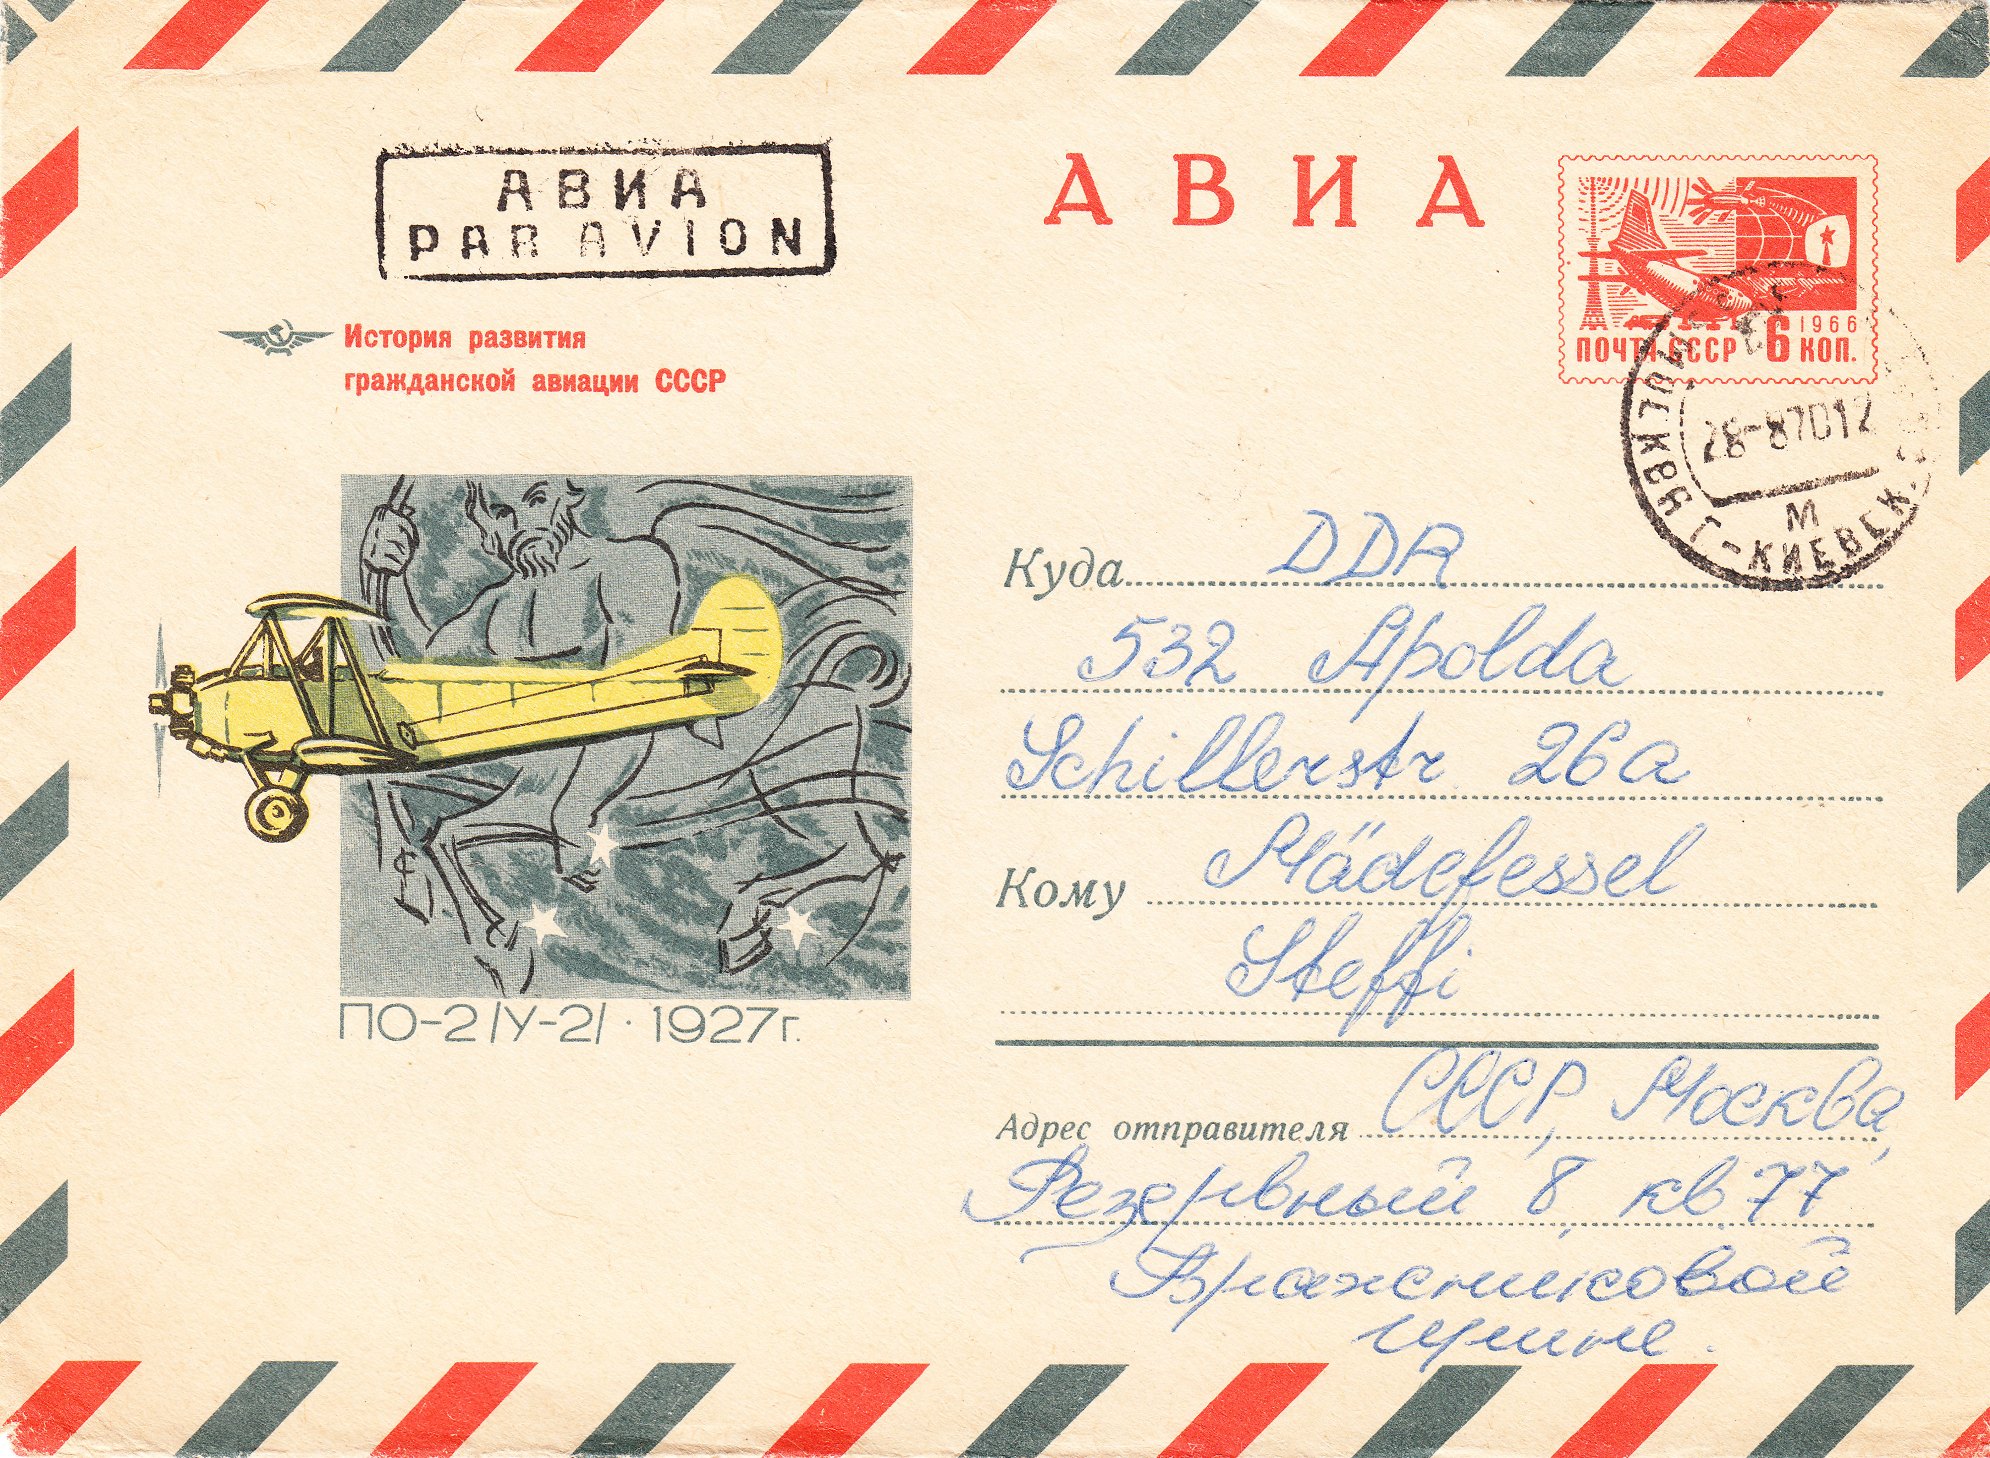 АВИА
PAR AVION
АВИА
1966
ПОЧТА СССР 6 КОП.
История развития
гражданской авиации СССР
28-87012
М
МОСКВА Г-КИЕВСК.
ПО-2 /У-2/ · 1927г.
Куда DDR
532 Apolda
Schillerstr 26a
Кому Mädefessel
Steffi
Адрес отправителя СССР, Москва,
Резервный 8, кв 77
Вражниковой
Ирине.